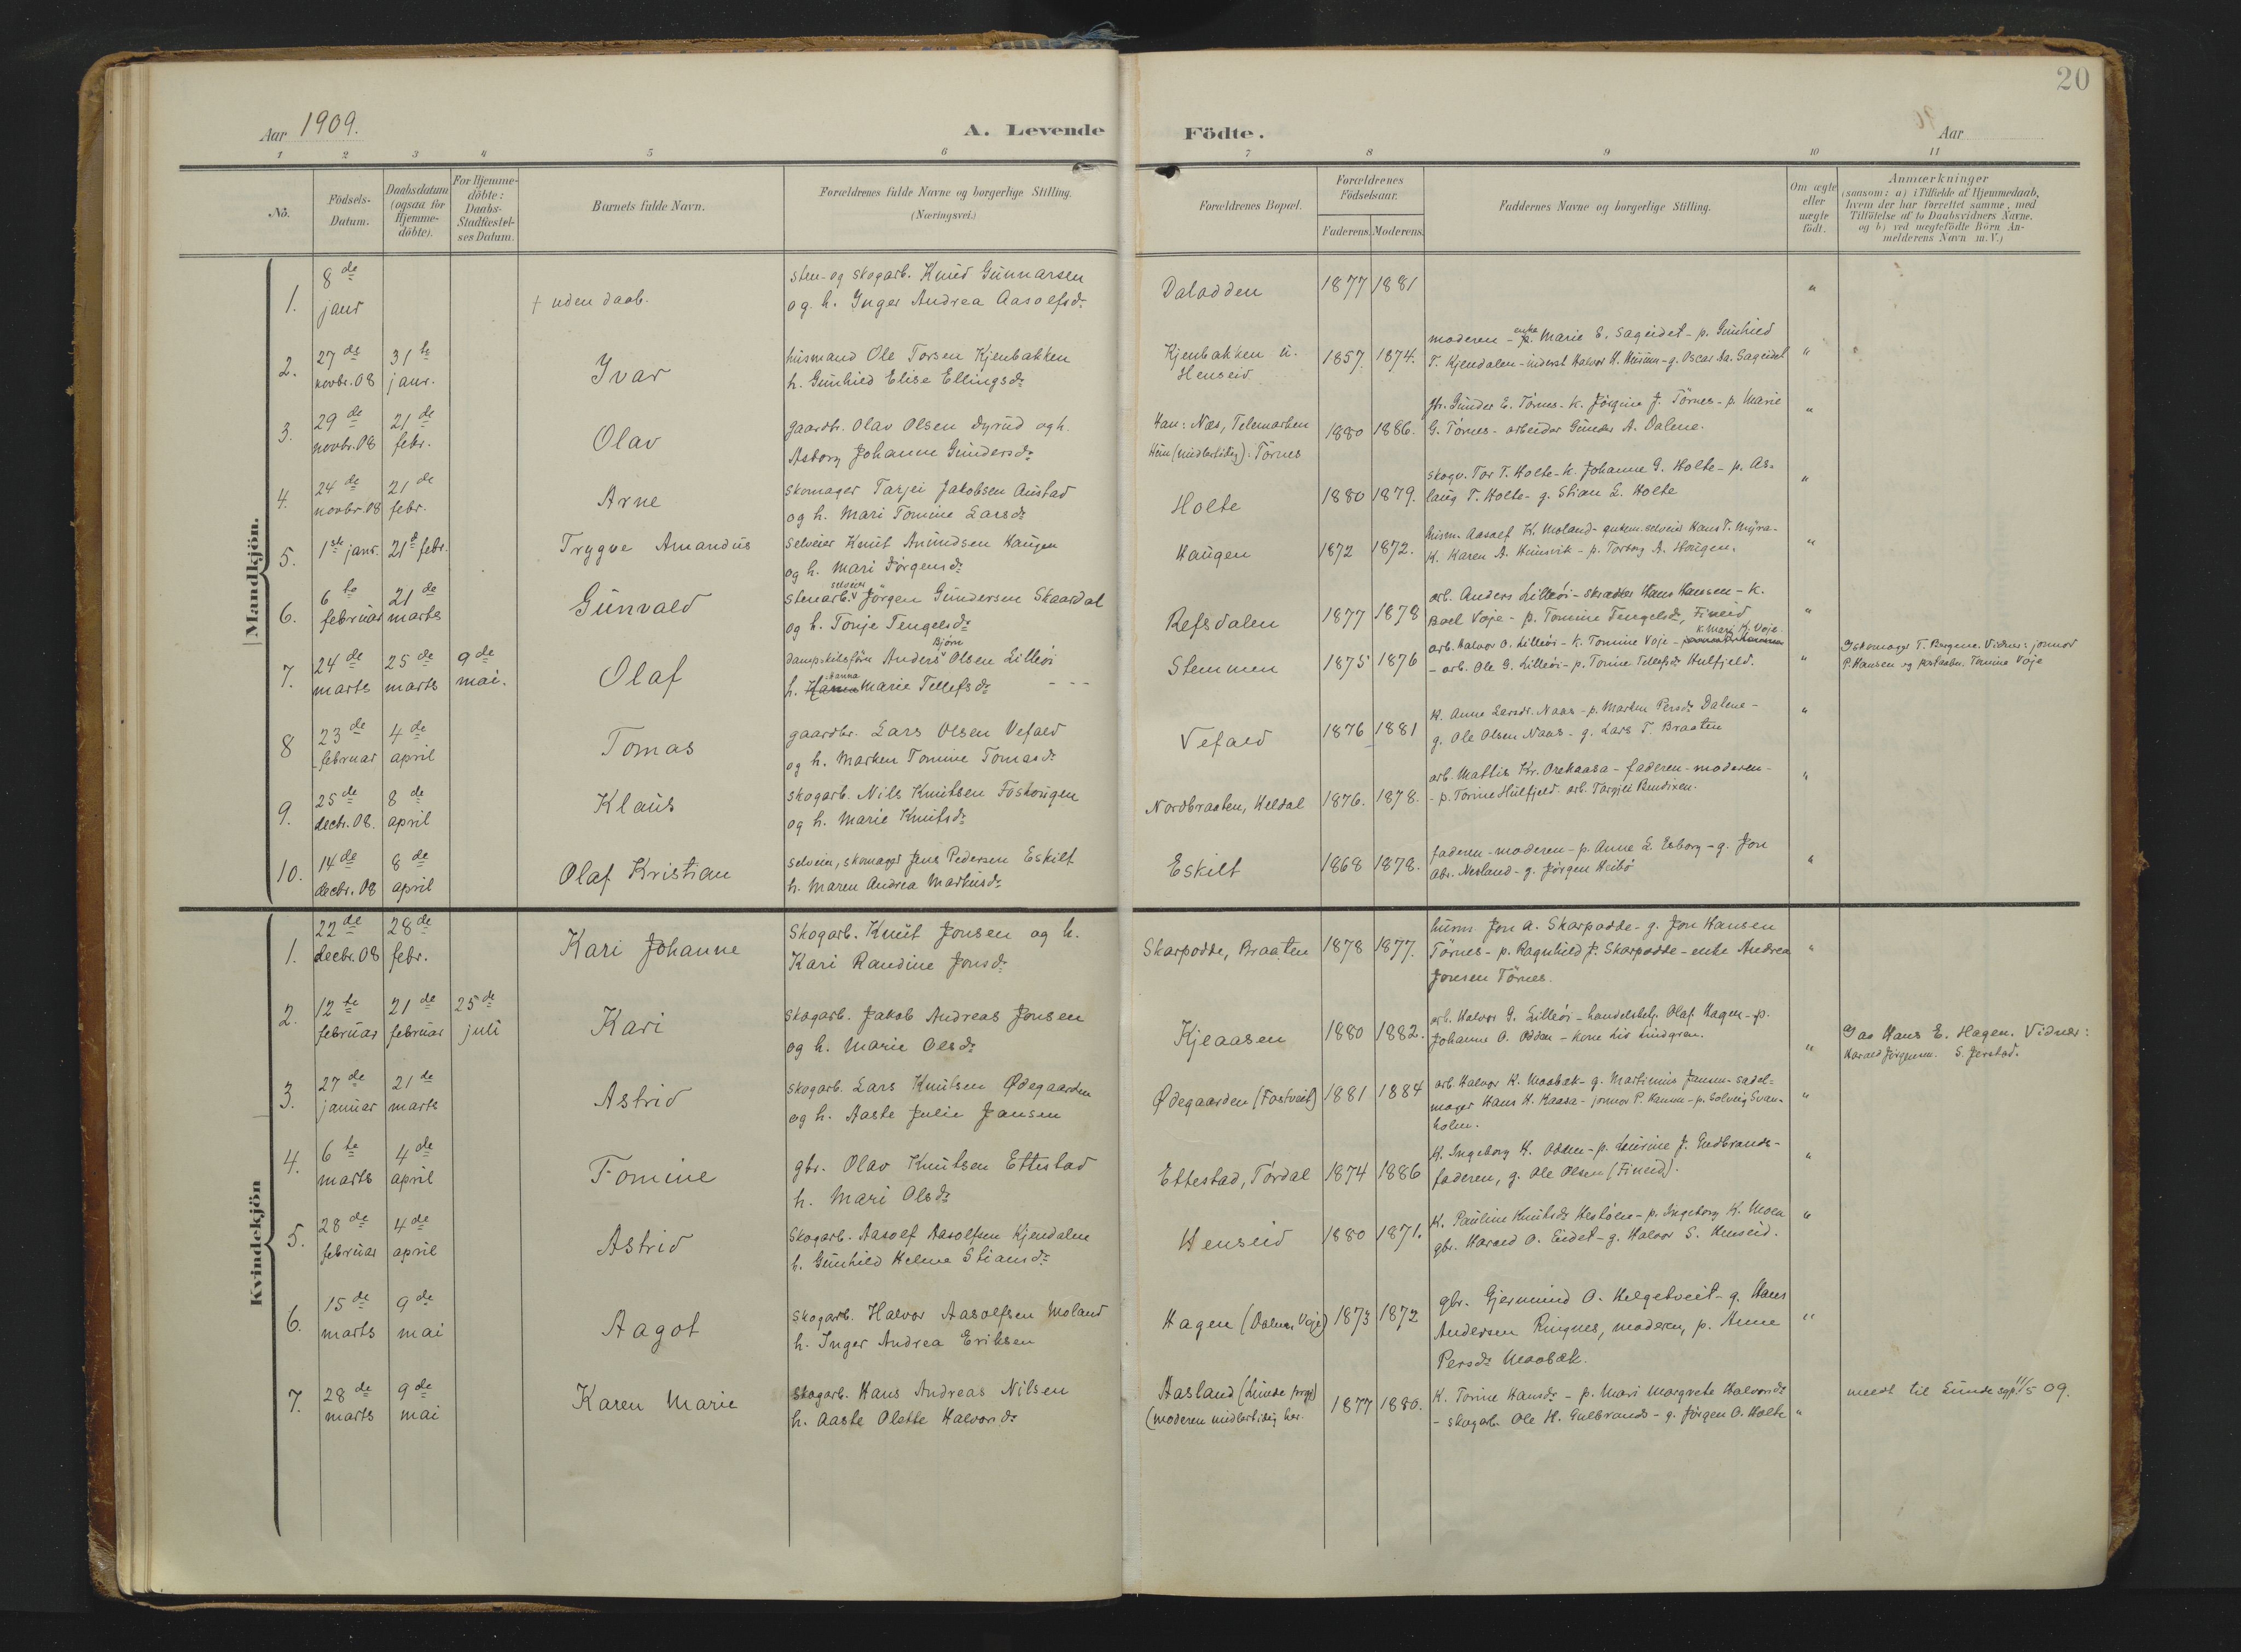 20
Aar 1909.
A. Levende Födte.
Aar
1 2 3 4 5 6 7 8 9 10 11
No.
Födsels-
Datum.
Daabsdatum
(ogsaa for
Hjemme-
döbte).
For Hjemme-
döbte:
Daabs-
Stadfæstel-
ses Datum.
Barnets fulde Navn.
Forældrenes fulde Navne og borgerlige Stilling.
(Næringsvei.)
Forældrenes Bopæl.
Forældrenes
Födselsaar.
Faderens. Moderens.
Faddernes Navne og borgerlige Stilling.
Om ægte
eller
uægte
födt.
Anmærkninger
(saasom: a) i Tilfælde af Hjemmedaab,
hvem der har forrettet samme, med
Tilföielse af to Daabsvidners Navne,
og b) ved uægtefödte Börn An-
melderens Navn m. V.)
Mandkjön.
1. 8de
janr
† uden daab.
Sten- og skogarb. Knud Gunnarsen
og h. Inger Andrea Aasolfsdr
Dalodden
1877 1881
"
2. 27de
novbr. 08
31te
janr.
Ivar
husmand Ole Torsen Kjenbakken
h. Gunhild Elise Ellingsdr
Kjenbakken u.
Henseid
1857. 1874.
moderen - enke Marie E. Sageidet - p. Gunhild
T. Kjendalen - inderst Halvor H. - g. Oscar Sageidet
"
3. 29de
novbr. 08
21de
febr.
Olav
gaardbr. Olav Olsen Dyrud og h.
Asborg Johanne Gundersdr
Han: Næs, Telemarken
Hun (midlertidig): Törnes
1880 1886.
gbr. Gunder E. Törnes - k. Jörgine J. Törnes - p. Marie
G. Törnes - arbeider Gunder A. Dalene.
"
4. 24de
novbr. 08
21de
febr.
Arne
Skomager Tarjei Jakobsen Austad
og h. Mari Tomine Larsdr
Holte
1880 1879.
skogv. Tor T. Holte - k. Johanne G. Holte - p. As-
laug T. Holte - g. Stian L. Holte
"
5. 1ste janr.
21de febr.
Trygve Amandus
Selveier Knut Amundsen Haugen
og h. Mari Jörgensdr
Haugen
1872 1872.
husm. Aasolf K. Moland - selveier Hans T. Myra -
k. Karen A. - p. Torborg A. Hougen.
"
6. 6te
februar
21de
marts
Gunvald
selveier
Stenarb. Jörgen Gundersen Skaardal
og h. Tonje Tengelsdr
Refsdalen
1877 1878
arb. Anders Lilleöi - skrædder Hans Hansen - k.
Voje - p. Tomine Tengelsdr, Fineid
"
7. 24de
marts
25de
marts
9de
mai.
Olaf
Björn
Dampskibsförer Anders Olsen Lilleöi
Hanna
h. Marie Tellefsdr
Stemmen
1875 1876
k. Mari K. Voje.
arb. Halvor O. Lilleöi - k. Tomine Voje -
- arb. Ole G. Lilleöi - p. Tomine Tellefsdr Hulfjeld.
"
Vidner: jomor
P. Hansen og Tomine Voje
8 23de
februar
4de
april
Tomas
gaardbr. Lars Olsen Vefald
og h. Marken Tomine Tomasdr
Vefald
1876 1881
k. Anne Larsdr. Naas - p. Marken Persdr Dalene -
g. Ole Olsen Naas - g. Lars T. Braaten
"
9. 25de
decbr. 08.
8de
april
Klaus
Skogarb. Nils Knutsen Foshougen
og h. Marie Knutsdr
Nordbraaten, Heldal
1876. 1878.
arb. Mattis Kr. Orekaasa - faderen - moderen -
- p. Torine Hulfjeld - arb. Targjei Bendixen.
"
10. 14de
decbr. 08
8de
april
Olaf Kristian
Selveier, skomager Jens Pedersen Eskilt
h. Maren Andrea Markusdr
Eskilt
1868 1878.
faderen - moderen - p. Anne L. Esborg - g. Jon
Abr. Nesland - g. Jörgen Heibö
"
Kvindekjön
1. 22de
decbr. 08
28de
febr.
Kari Johanne
Skogarb. Knut Jonsen og h.
Kari Randine Jonsdr
Skarpodde, Braaten
1878 1877.
husm Jon A. Skarpodde - g. Jon Hansen
Törnes - p. Ragnhild J. Skarpodde - enke Andrea
Jonsen Törnes.
"
2. 12te
februar
21de
februar
25de
juli
Kari
Skogarb. Jakob Andreas Jonsen
og h. Marie Olsdr
Kjeaasen
1880 1882.
arb. Halvor G. Lilleöi - handelsbetj. Olaf Hagen - p.
Johanne O. Oddan - kone Liv Lindgren.
"
Hans E. Hagen. Vidner:
Harald Jörgensen. S. Jerstad.
3. 27de
januar
21de
marts
Astrid
Skogarb. Lars Knutsen Ödegaarden
og h. Aaste Julie Jansen
Ödegaarden (Fostveit)
1881 1884
arb. Halvor K. Moobæk - g. Martinius Jansen - sadel-
mager Hans H. Kaasa - jomor P. Hansen - p. Solveig Svan-
holm.
"
4. 6te
marts
4de
april
Tomine
gbr. Olav Knutsen Ettestad
h. Mari Olsdr
Ettestad, Tördal
1874 1886
k. Ingeborg K. Odden - p. Laurine J. Gudbrands -
faderen, g. Ole Olsen (Fineid).
"
5. 28de
februar
4de
april
Astrid
Skogarb. Aasolf Aasolfsen Kjendalen
h. Gunhild Helene Stiansdr
Henseid
1880 1871.
k. Pauline Knutsdr Hestöen - p. Ingeborg K. Moen
gbr. Harald O. Eidet - g. Halvor S. Henseid.
"
6. 15de
marts
9de
mai
Aagot
Skogarb. Halvor Aasolfsen Moland
h. Inger Andrea Eriksen
Hagen (Dalene, Voje)
1873 1872
gbr. Gjermund O. Helgetveit - g. Hans
Andersen Ringnes, moderen, p. Anne
Persdr Moobæk.
"
7. 28de
marts
9de
mai
Karen Marie
Skogarb. Hans Andreas Nilsen
h. Aaste Olette Halvorsdr
Aasland (Lunde prgj)
(moderen midlertidig her.
1877 1880.
k. Torine Hansdr - p. Mari Margrete Halvorsdr
- skogarb. Ole H. Gulbrands - g. Jörgen O. Holte
"
meldt til Lunde sgp 11/5 09.